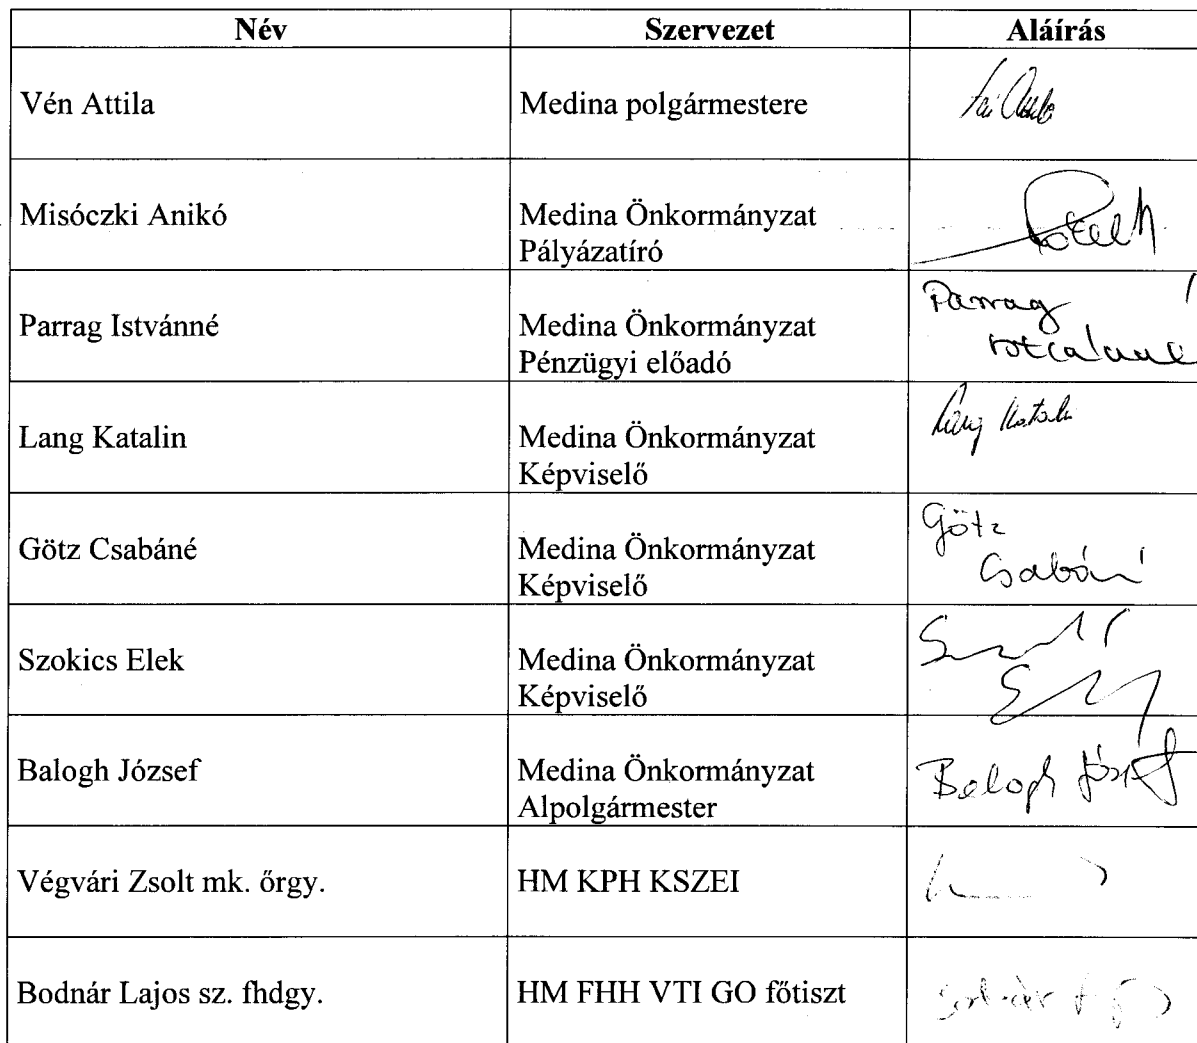 Név Szervezet Aláírás
Vén Attila Medina polgármestere
Misóczki Anikó Medina Önkormányzat
Pályázatíró
Parrag Istvánné Medina Önkormányzat Parrag
Pénzügyi előadó
Lang Katalin Medina Önkormányzat Lang Katalin
Képviselő
Götz Csabáné Medina Önkormányzat Götz
Képviselő Csabáné
Szokics Elek Medina Önkormányzat
Képviselő
Balogh József Medina Önkormányzat Balogh József
Alpolgármester
Végvári Zsolt mk. őrgy. HM KPH KSZEI
Bodnár Lajos sz. fhdgy. HM FHH VTI GO főtiszt